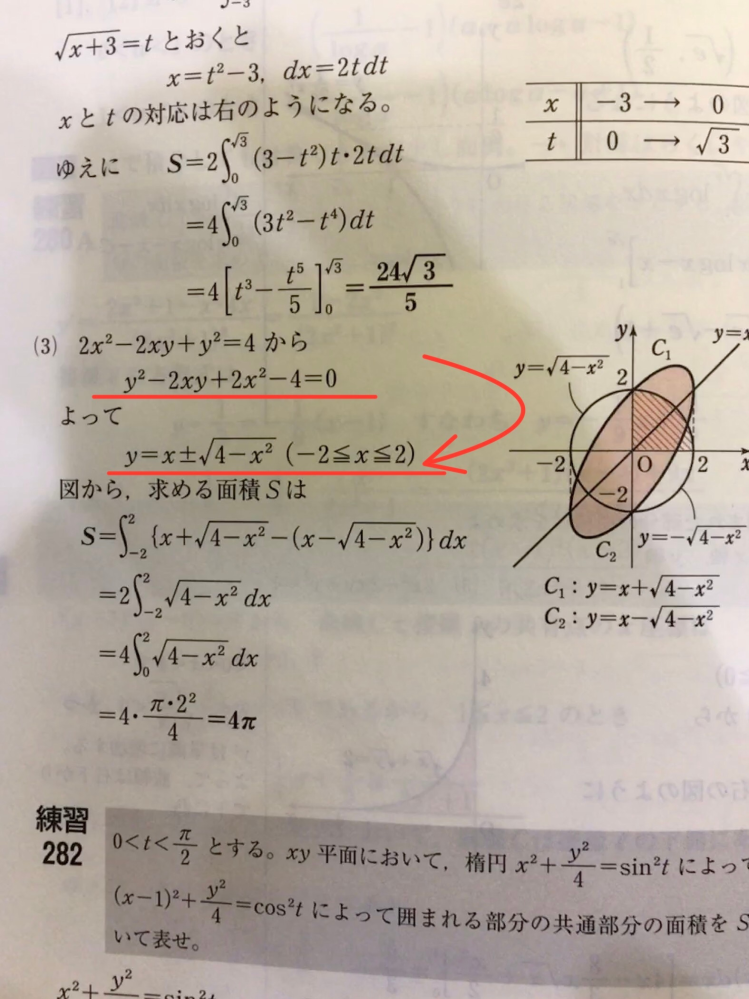 √(x+3)=t とおくと
x=t²−3, dx=2tdt
xとtの対応は右のようになる。
x −3 → 0
t 0 → √3
ゆえに S=2∫₀^√3 (3−t²)t・2tdt
=4∫₀^√3 (3t²−t⁴)dt
=4[t³−t⁵/5]₀^√3=24√3/5
(3) 2x²−2xy+y²=4 から
y²−2xy+2x²−4=0
よって
y=x±√(4−x²) (−2≦x≦2)
図から，求める面積Sは
S=∫₋₂² {x+√(4−x²)−(x−√(4−x²))}dx
=2∫₋₂² √(4−x²) dx
=4∫₀² √(4−x²) dx
=4・π・2²/4=4π
y
C₁
y=x
y=√(4−x²)
2
−2
O
2
x
−2
C₂
y=−√(4−x²)
C₁：y=x+√(4−x²)
C₂：y=x−√(4−x²)
練習
282
0<t<π/2 とする。xy平面において，楕円 x²+y²/4=sin²t によって
(x−1)²+y²/4=cos²t によって囲まれる部分の共通部分の面積を S
いて表せ。